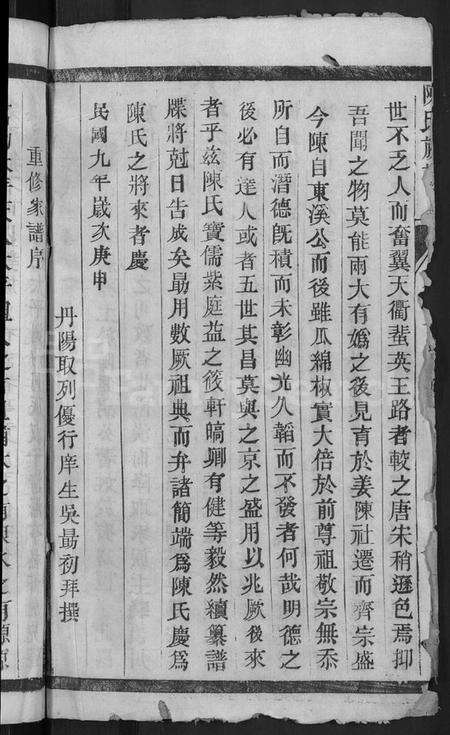 陳氏族
世不乏人而奮翼天衢蜚英王路者較之唐宋稍遜色焉抑
吾聞之物莫能兩大有嬀之後見育於姜陳社遷而齊宗盛
今陳自東溪公而後雖瓜綿椒實大倍於前尊祖敬宗無忝
所自而潛德旣積而未彰幽光久韜而不發者何哉明德之
後必有達人或者五世其昌莫與之京之盛用以兆厥後來
者乎茲陳氏寶儒紫庭益之筱軒暠卿有健等毅然續纂譜
牒將尅日告成矣勗用數厥祖典而弁諸簡端爲陳氏慶爲
陳氏之將來者慶
民國九年歲次庚申
丹陽取列優行庠生吳勗初拜撰
重修家譜序